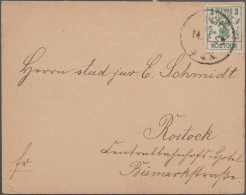 3 3
14.
ROSTOCK
Herrn stud jur. C. Schmidt
Rostock
fr.
Centralbahnhofs-Hotel
Bismarkstraße